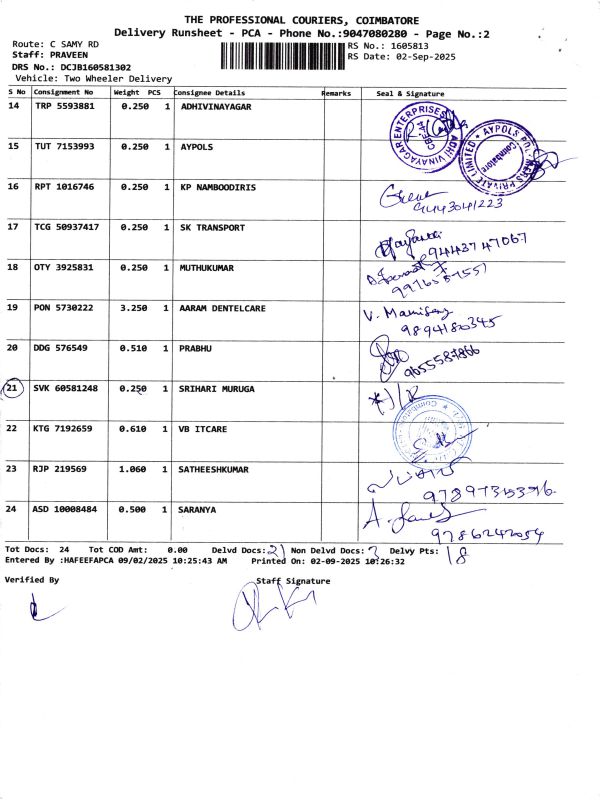 THE PROFESSIONAL COURIERS, COIMBATORE
Delivery Runsheet - PCA - Phone No.:9047080280 - Page No.:2
Route: C SAMY RD RS No.: 1605813
Staff: PRAVEEN RS Date: 02-Sep-2025
DRS No.: DCJB160581302
Vehicle: Two Wheeler Delivery
S No Consignment No Weight PCS Consignee Details Remarks Seal & Signature
14 TRP 5593881 0.250 1 ADHIVINAYAGAR
ADHI VINAYAGAR ENTERPRISES
15 TUT 7153993 0.250 1 AYPOLS
AYPOLS POLYMERS PRIVATE LIMITED
Coimbatore
16 RPT 1016746 0.250 1 KP NAMBOODIRIS
17 TCG 50937417 0.250 1 SK TRANSPORT
9443747067
18 OTY 3925831 0.250 1 MUTHUKUMAR
19 PON 5730222 3.250 1 AARAM DENTELCARE
9894180345
20 DDG 576549 0.510 1 PRABHU
9655587866
21 SVK 60581248 0.250 1 SRIHARI MURUGA
22 KTG 7192659 0.610 1 VB ITCARE
23 RJP 219569 1.060 1 SATHEESHKUMAR
24 ASD 10008484 0.500 1 SARANYA
9786242054
Tot Docs: 24 Tot COD Amt: 0.00 Delvd Docs: 21 Non Delvd Docs: 3 Delvy Pts: 18
Entered By :HAFEEFAPCA 09/02/2025 10:25:43 AM Printed On: 02-09-2025 10:26:32
Verified By Staff Signature